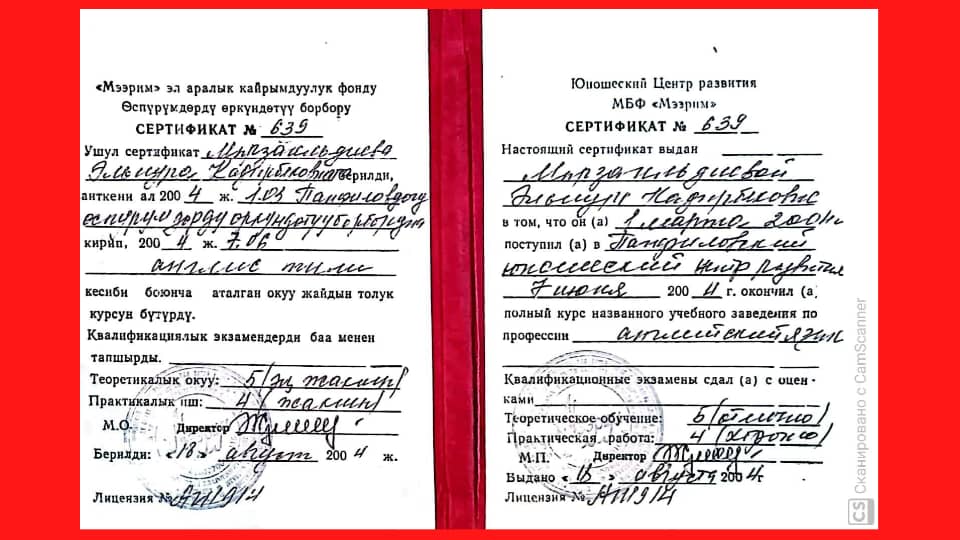 «Мээрим» эл аралык кайрымдуулук фонду
Өспүрүмдөрдү өркүндөтүү борбору
СЕРТИФИКАТ № 639
Ушул сертификат Мырзакльдиева
Эльнура Кадырбековна берилди,
анткени ал 2004 ж. 1.03 Панфиловдогу
өспүрүмдөрдү өркүндөтүү борборуна
кирип, 2004 ж. 7.06
англис тили
кесиби боюнча аталган окуу жайдын толук
курсун бүтүрдү.
Квалификациялык экзамендерди баа менен
тапшырды.
Теоретикалык окуу: 5 (эң жакшы)
Практикалык иш: 4 (жакшы)
М.О. Директор
Берилди: «18» август 2004 ж.
Лицензия №
Юношеский Центр развития
МБФ «Мээрим»
СЕРТИФИКАТ № 639
Настоящий сертификат выдан
Мырзакльдиевой
Эльнуре Кадырбековне
в том, что он (а) 1 марта 2004г.
поступил (а) в Панфиловский
юношеский центр развития
7 июня 2004 г. окончил (а
полный курс названного учебного заведения по
профессии английский язык
Квалификационные экзамены сдал (а) с оцен-
ками
Теоретическое обучение: 5 (отлично)
Практическая работа: 4 (хорошо)
М.П. Директор
Выдано « » августа 2004г
Лицензия №
CS Сканировано с CamScanner